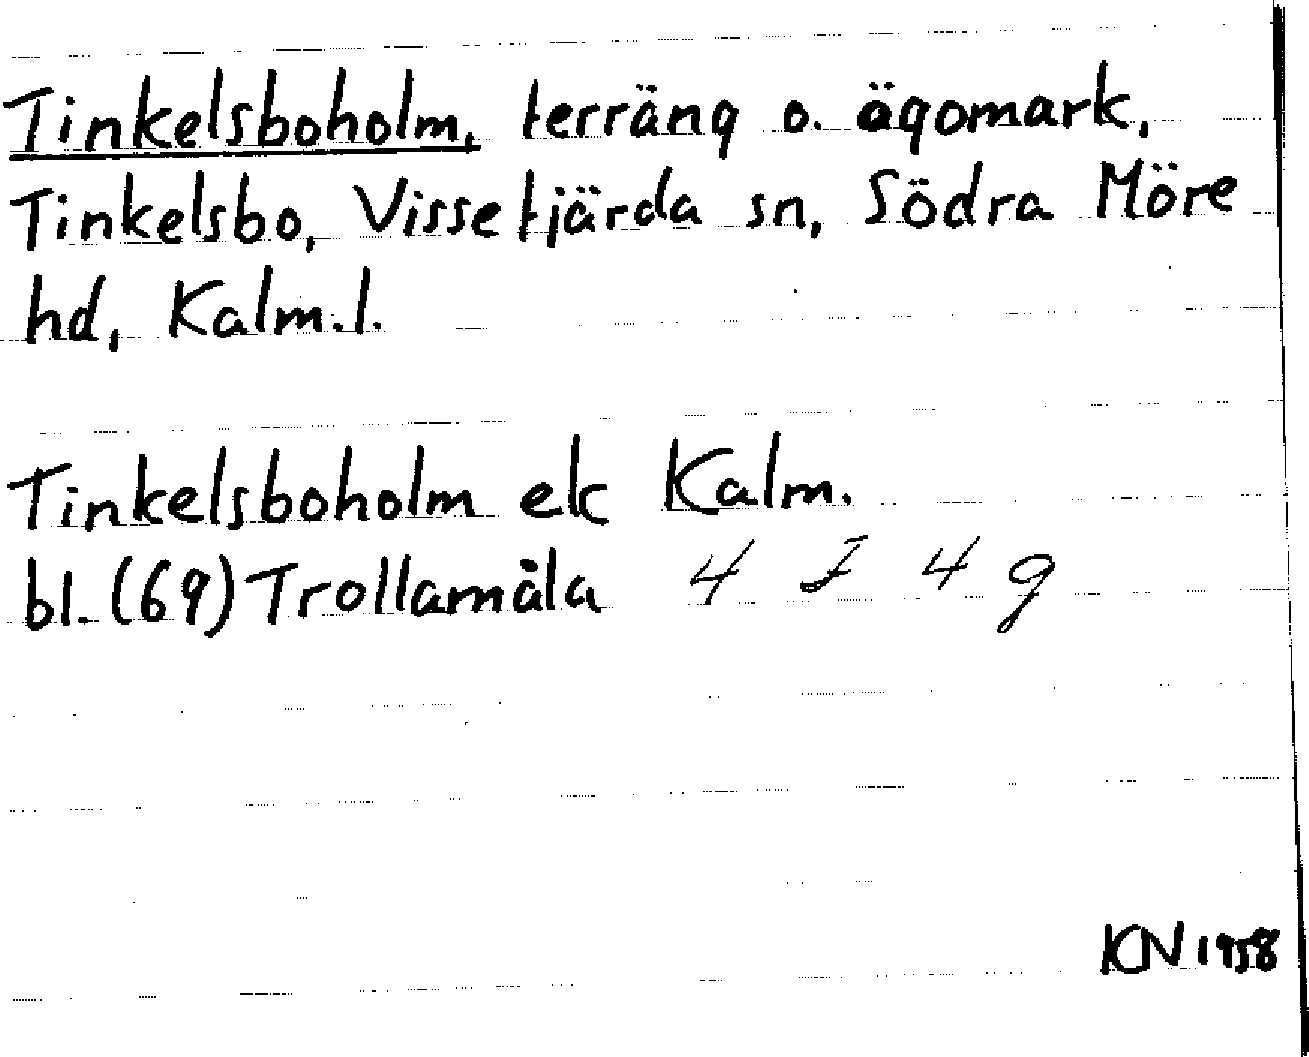 Tinkelsboholm, terräng o. ägomark,
Tinkelsbo, Vissefjärda sn, Södra Möre
hd, Kalm.l.
Tinkelsboholm ek Kalm.
bl. (69) Trollamåla 4 F 4 g
KN 1958